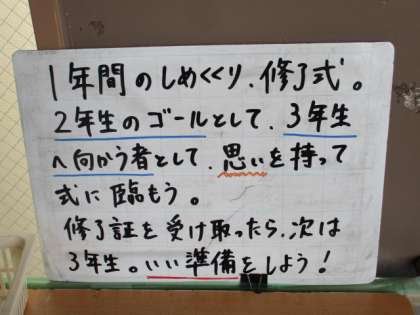 1年間のしめくくり、修了式。
2年生のゴールとして、3年生
へ向かう者として、思いを持って
式に臨もう。
修了証を受け取ったら、次は
3年生。いい準備をしよう!